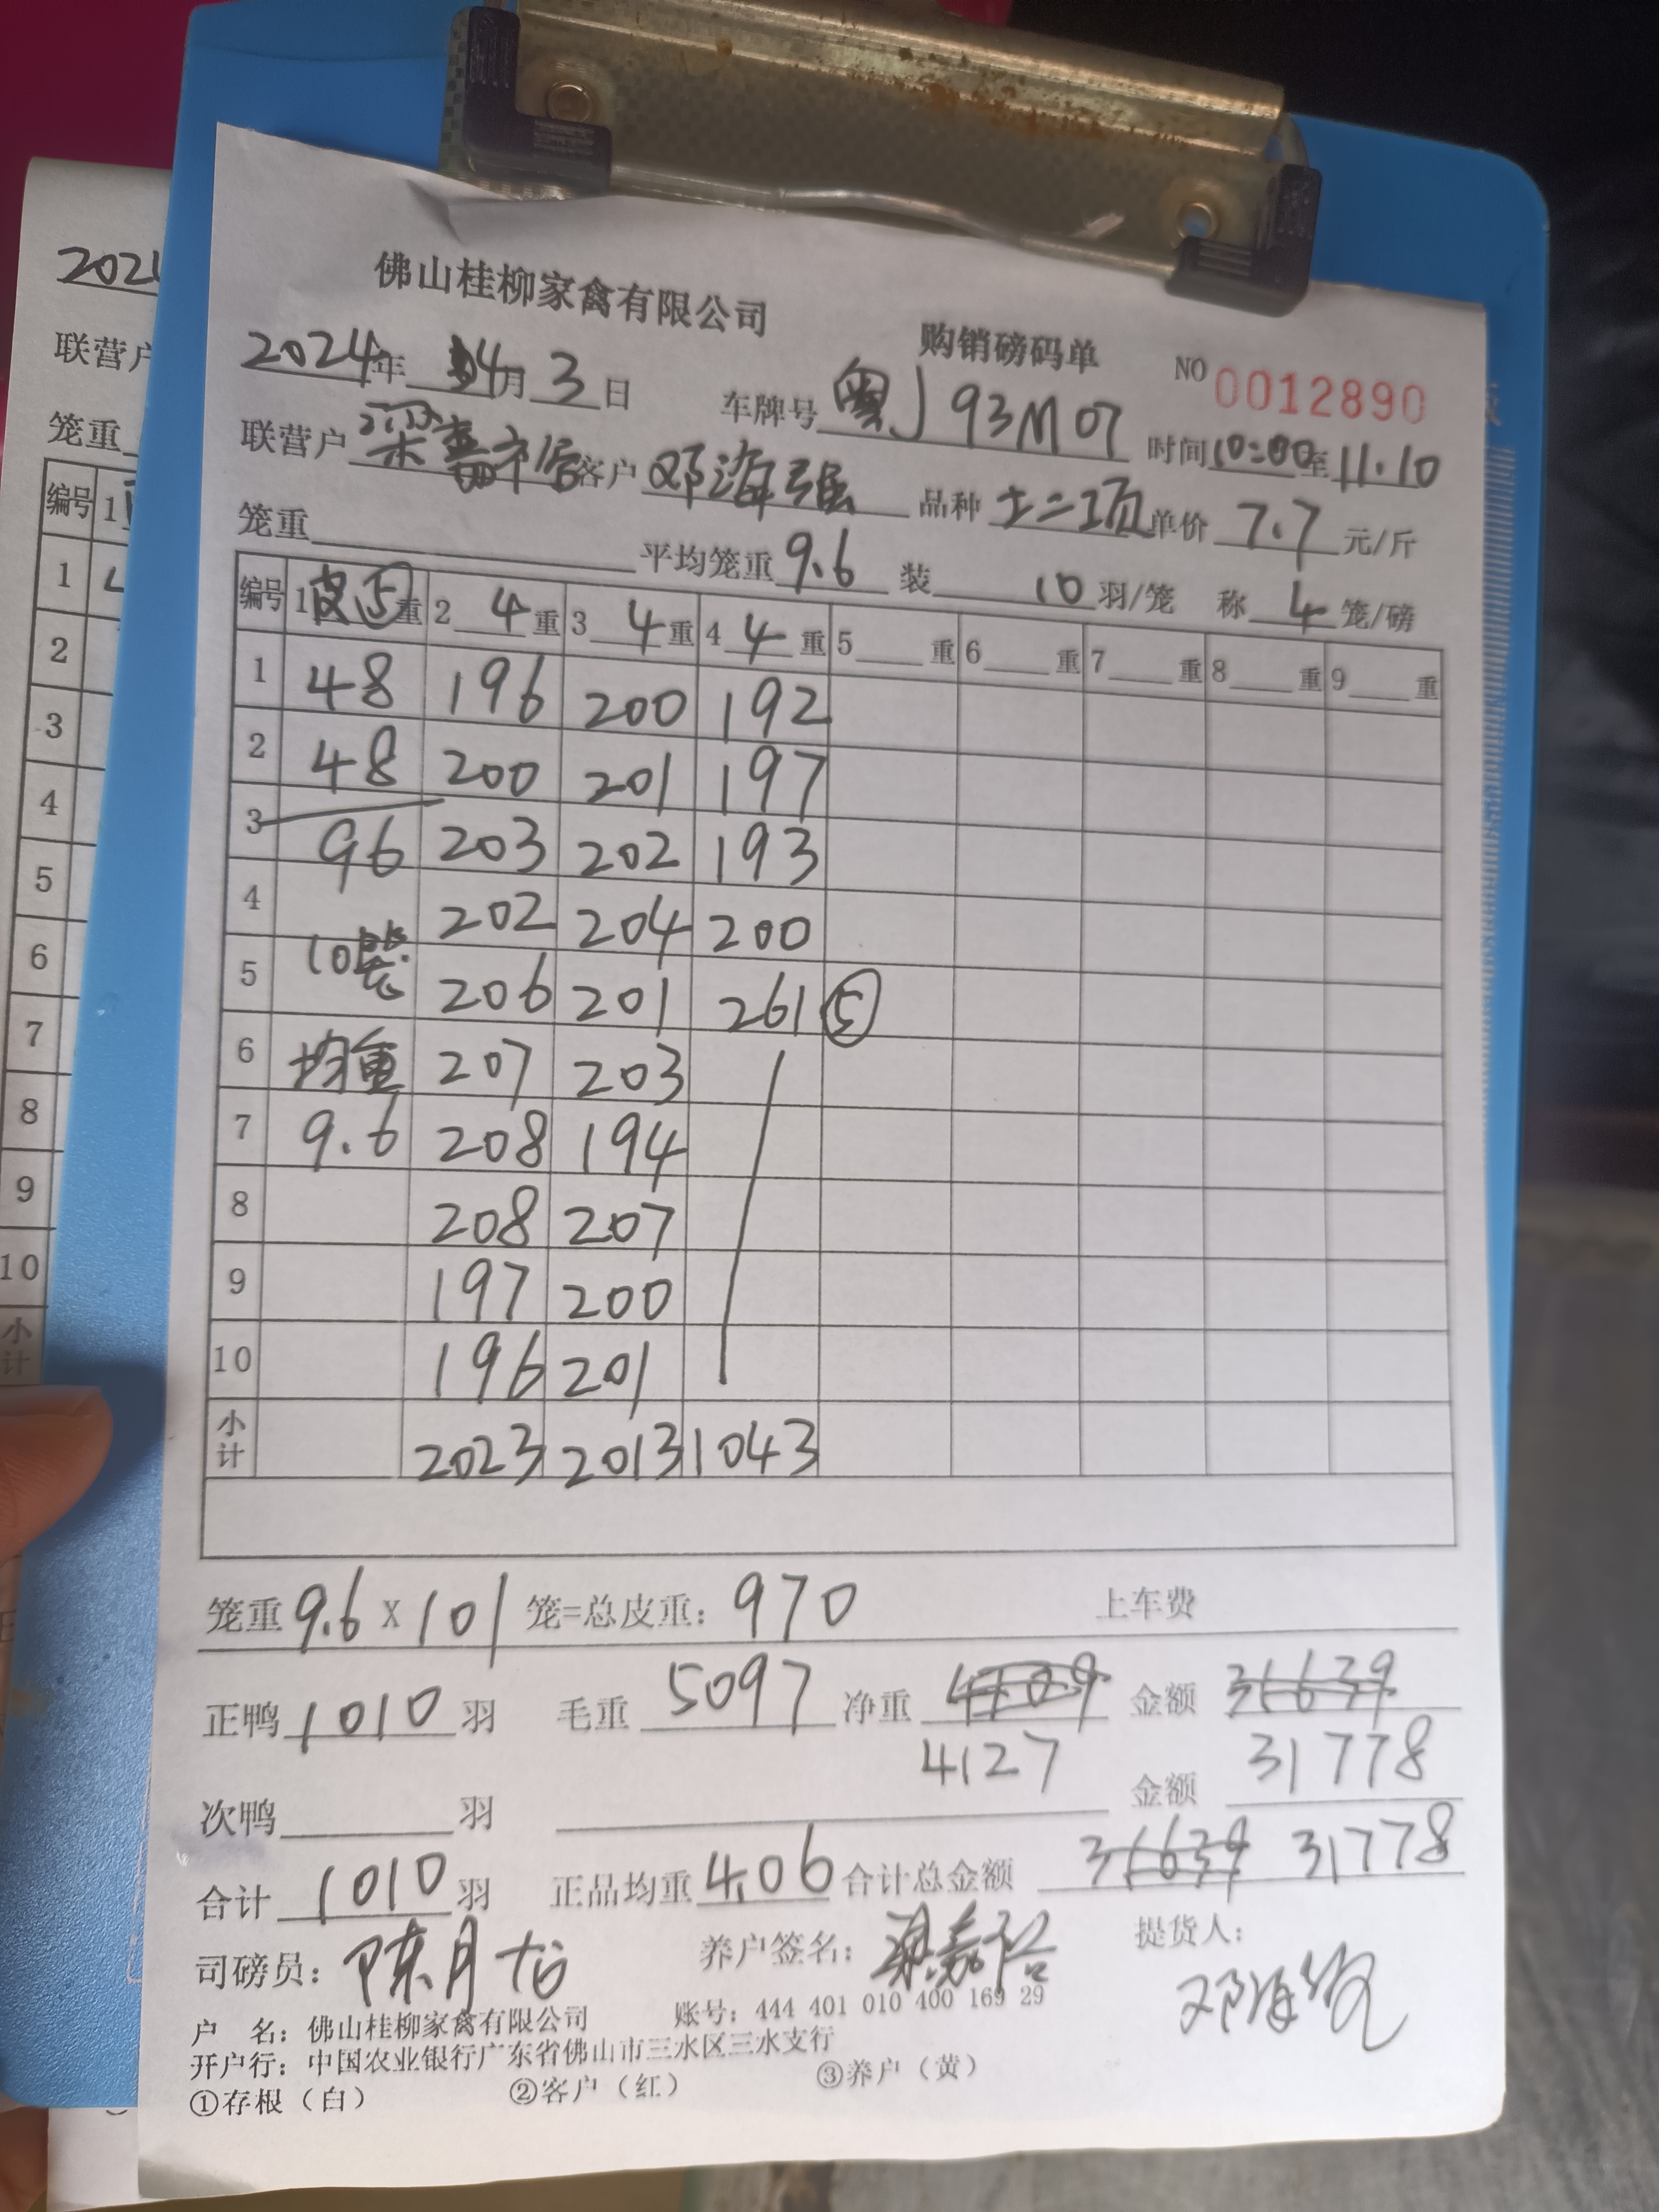 佛山桂柳家禽有限公司 购销磅码单 NO 0012890
2024年 4月 3日 车牌号 粤J 93M07 时间 10:00至 11.10
联营户 客户 邓海强 品种 土二项 单价 7.7 元/斤
笼重 平均笼重 9.6 装 10 羽/笼 称 4 笼/磅
编号 1 皮⑤重 2 4 重 3 4 重 4 4 重 5 重 6 重 7 重 8 重 9 重
1 48 196 200 192
2 48 200 201 197
3 96 203 202 193
4 202 204 200
5 10装 206 201 261 ⑤
6 均重 207 203
7 9.6 208 194
8 208 207
9 197 200
10 196 201
小计 2023 2013 1043
笼重 9.6 X 101 笼=总皮重: 970 上车费
正鸭 1010 羽 毛重 5097 净重 金额 31639
4127 31778
次鸭 羽 金额
合计 1010 羽 正品均重 4.06 合计总金额 31639 31778
司磅员: 陈月 养户签名: 提货人:
邓海
户 名: 佛山桂柳家禽有限公司 账号: 444 401 010 400 169 29
开户行: 中国农业银行广东省佛山市三水区三水支行
①存根（白） ②客户（红） ③养户（黄）
202
联营户
笼重
编号 1
1
2
3
4
5
6
7
8
9
10
小计